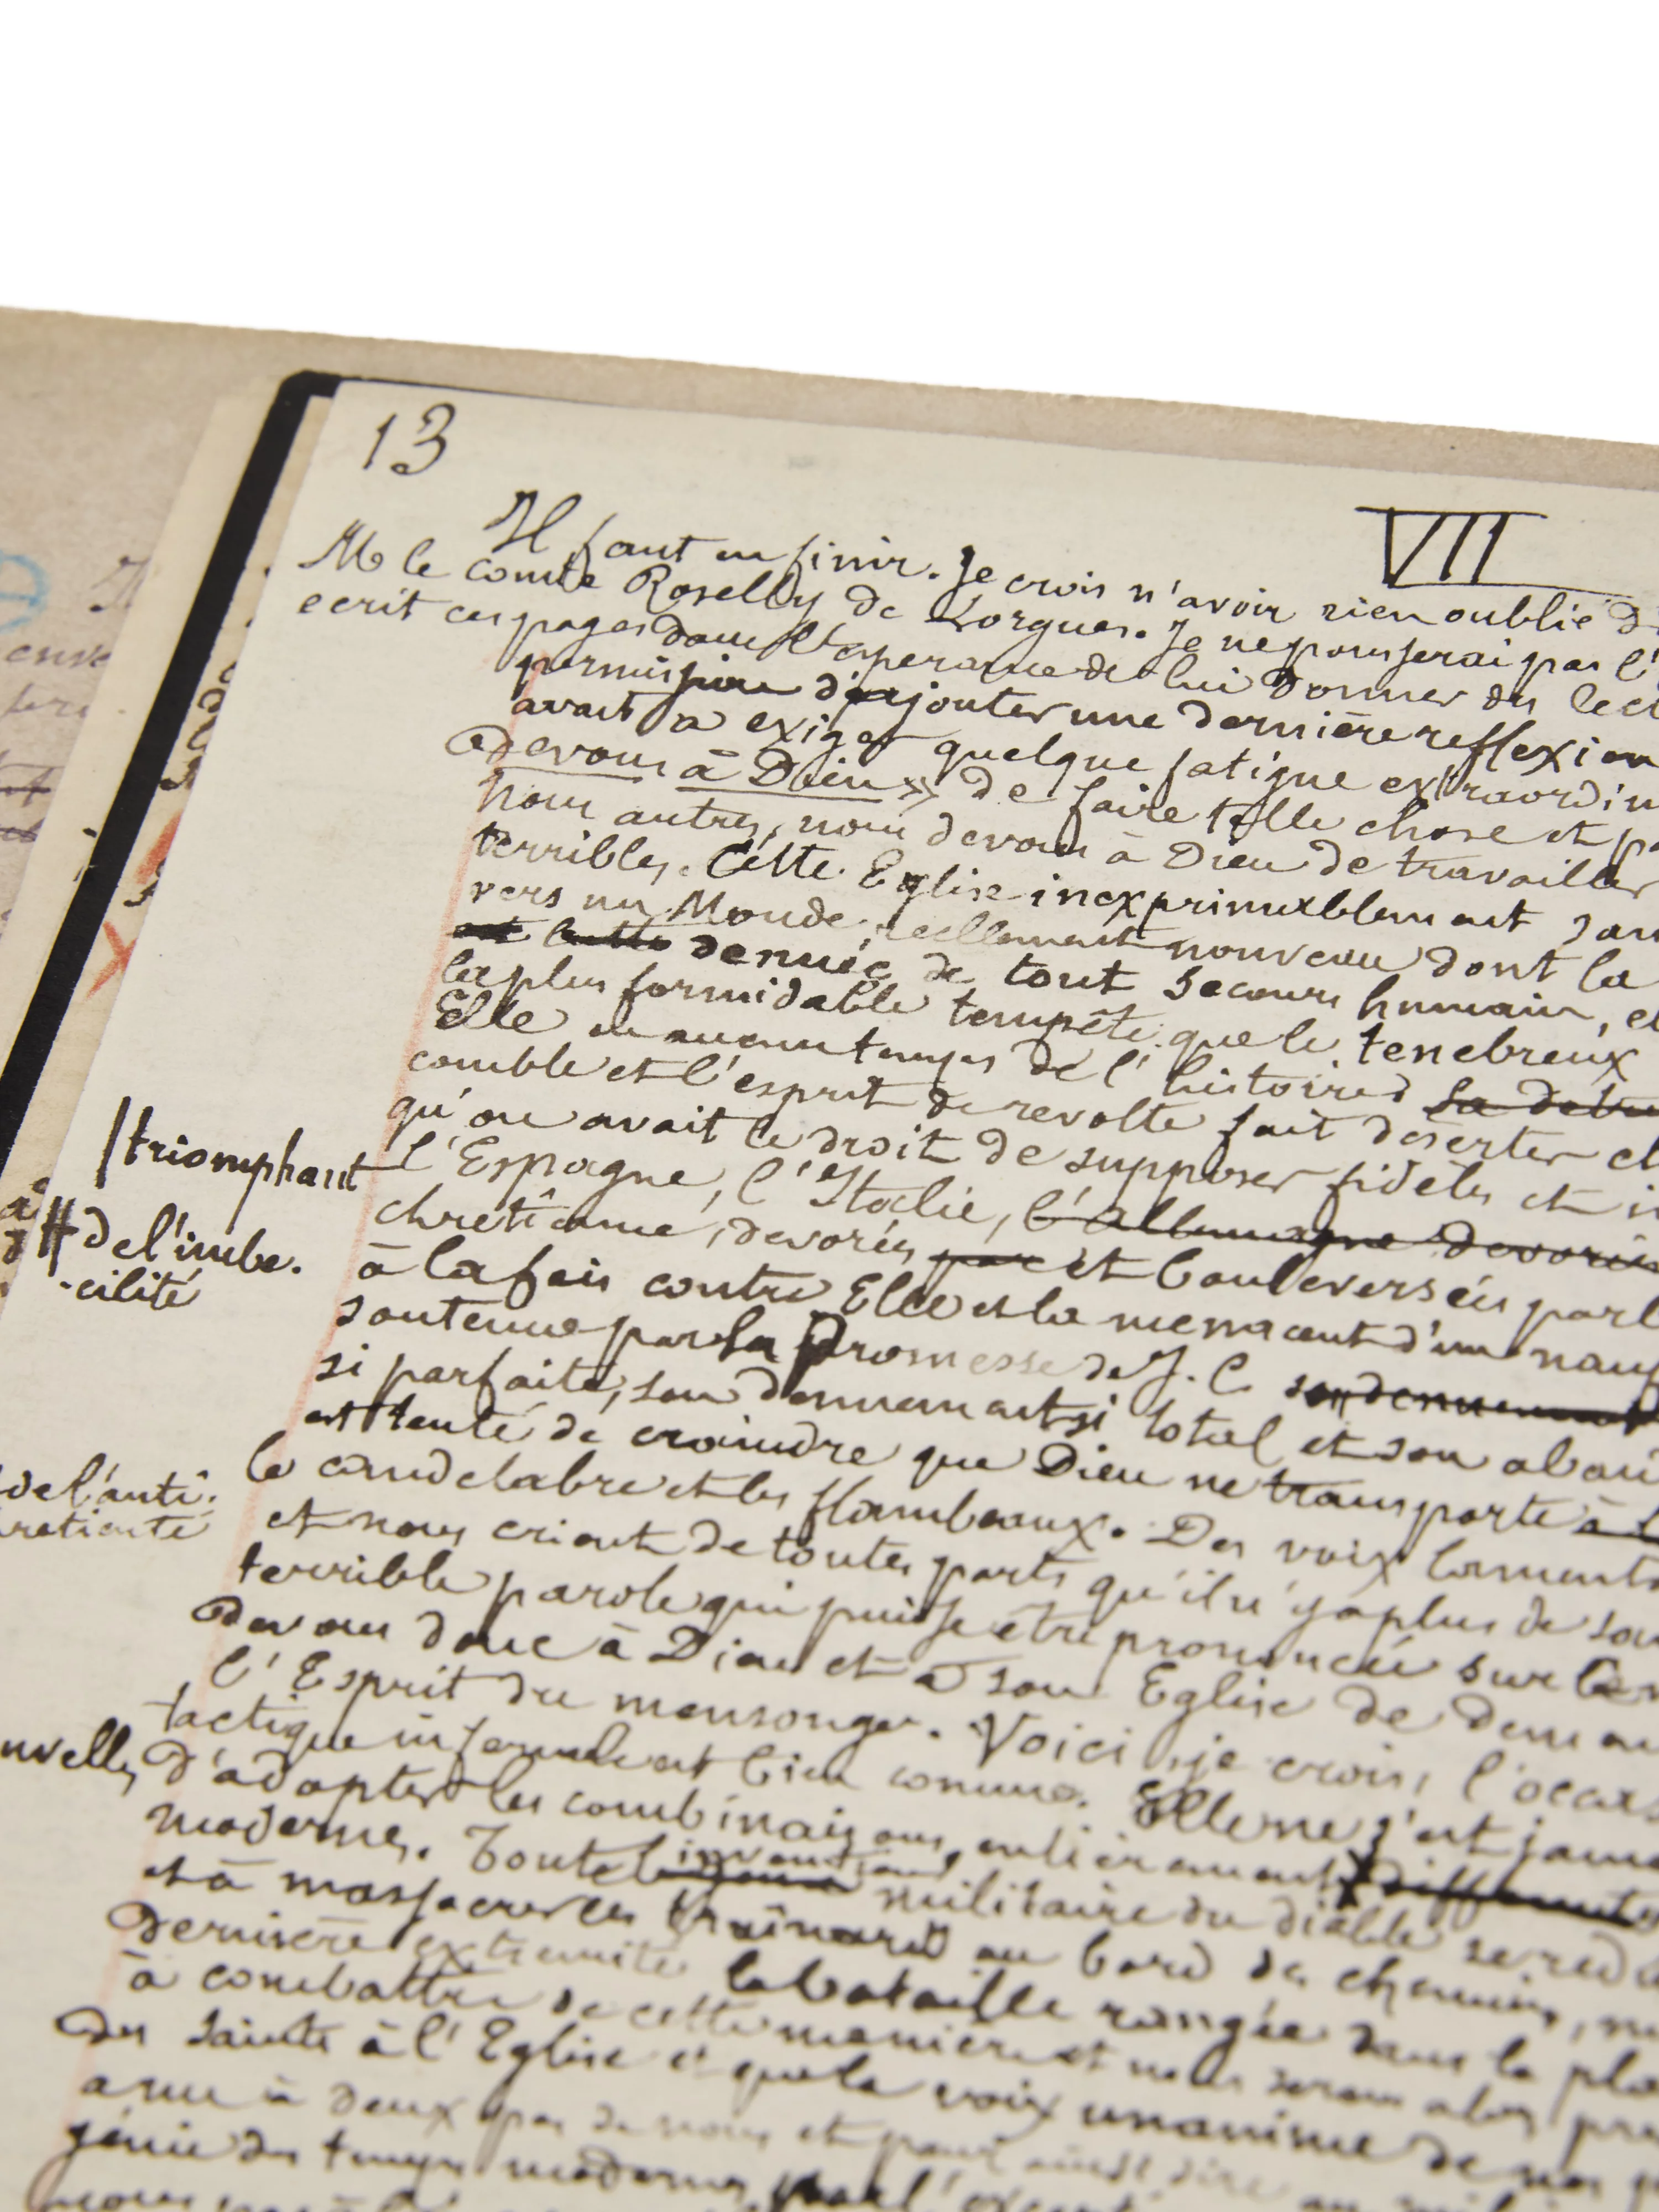 13
VII
Il faut en finir. Je crois n'avoir rien oublié d
M le comte Roselly de Lorgues. Je ne pousserai pas l'
ecrit ces pages dans l'esperance de lui donner des lect
permis d'ajouter une dernière reflexion
avait a exiger quelque fatigue extraordin
devons à Dieu» de faire telle chose et pa
Nous autres, nous devons à Dieu de travailler
terribles. Cette Eglise inexprimablement san
vers un Monde reellement nouveau dont la
denuée de tout secours humain, et
la plus formidable tempête que le tenebreux
Elle en aucun temps de l'histoire
comble et l'esprit de revolte fait déserter
qu'on avait le droit de supposer fidèles et i
/triomphant
l'Espagne, l'Italie, l'Allemagne devorée
# de l'imbe.
-cilité
chrétienne, devorées par et bouleversées par l
à la fois contre Elle et la menacent d'un nauf
soutenue par la Promesse de J. C. son denuement
si parfaite, son denuement si total et son aban
est tenté de craindre que Dieu ne transporte à
de l'anti.
le candelabre et les flambeaux. Des voix lamenta
et nous crient de toutes parts qu'il n'y a plus de
terrible parole qui puisse être prononcée sur
devons donc à Dieu et à son Eglise de
l'Esprit du mensonge. Voici, je crois, l'occas
tactique infernale est bien connue. Elle ne s'est jama
uvelles
d'adopter les combinaisons, entièrement differentes
moderne. Toute l'invention militaire du diable se red
et à massacrer les trainards au bord des chemins,
dernière extremité la bataille rangée dans la pla
à combattre de cette manière et nous serons alors
des Saints à l'Eglise et que la voix unanime de nos
à deux pas de nous et pour ainsi dire
génie des temps modernes